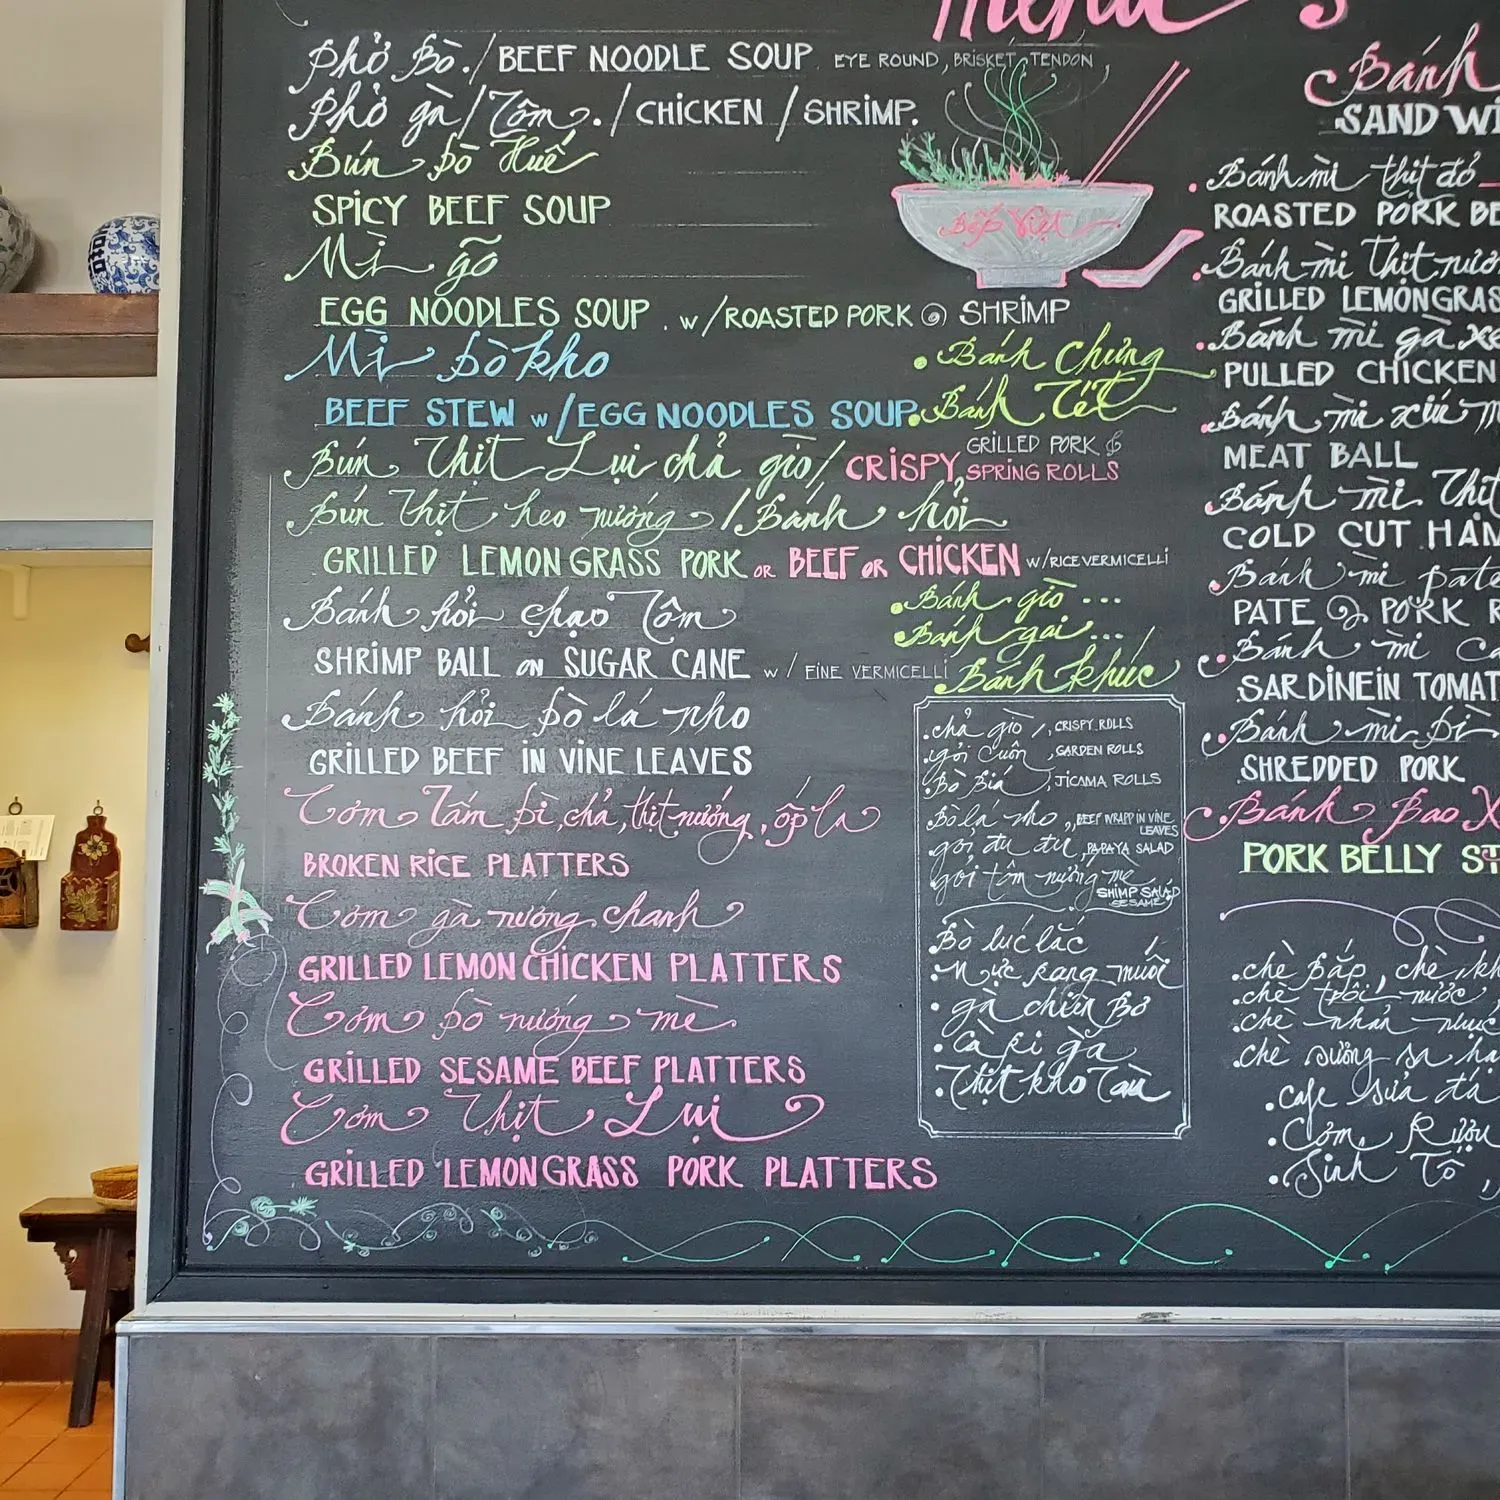 menu's
Phở Bò. / BEEF NOODLE SOUP EYE ROUND, BRISKET, TENDON,
Phở gà / Tôm. / CHICKEN / SHRIMP.
Bún bò Huế
SPICY BEEF SOUP
Mì gõ
EGG NOODLES SOUP . w/ROASTED PORK @ SHRIMP
Mì bò kho
BEEF STEW w/EGG NOODLES SOUP
Bún Thịt Lụi chả giò / CRISPY GRILLED PORK & SPRING ROLLS
Bún Thịt heo nướng / Bánh hỏi
GRILLED LEMON GRASS PORK OR BEEF OR CHICKEN w/RICE VERMICELLI
Bánh hỏi chạo Tôm
SHRIMP BALL on SUGAR CANE w/ FINE VERMICELLI
Bánh hỏi bò lá nho
GRILLED BEEF IN VINE LEAVES
Cơm Tấm bì, chả, thịt nướng, ốp la
BROKEN RICE PLATTERS
Cơm gà nướng chanh
GRILLED LEMON CHICKEN PLATTERS
Cơm bò nướng mè
GRILLED SESAME BEEF PLATTERS
Cơm Thịt Lụi
GRILLED LEMONGRASS PORK PLATTERS
Bếp Việt
• Bánh Chưng
• Bánh Tét
• Bánh giò ...
• Bánh gai ...
• Bánh khúc
• chả giò, CRISPY ROLLS
• gỏi cuốn, GARDEN ROLLS
• Bò Bía, JICAMA ROLLS
Bò lá nho, BEEF WRAPP IN VINE
LEAVES
gỏi đu đủ, PAPAYA SALAD
gỏi tôm nướng mè
SHIMP SALAD
SESAME
• Bò lúc lắc
• Mực Rang muối
• gà chiên Bơ
• Cà Ri gà
• Thịt kho Tàu
Bánh
SANDWI
• Bánh mì thịt đỏ
ROASTED PORK BE
• Bánh mì Thịt nướ
GRILLED LEMONGRAS
• Bánh mì gà xé
PULLED CHICKEN
• Bánh mì xíu m
MEAT BALL
• Bánh mì Thịt
COLD CUT HAM
• Bánh mì pate
PATE @ PORK R
• Bánh mì Ca
SARDINE IN TOMAT
• Bánh mì bì
SHREDDED PORK
Bánh Bao X
PORK BELLY ST
• chè Bắp, chè kh
• chè trôi nước,
• chè nhãn nhục
• chè sương sa hạ
• Cafe sữa đá
• Cơm Rượu
• Sinh Tố,